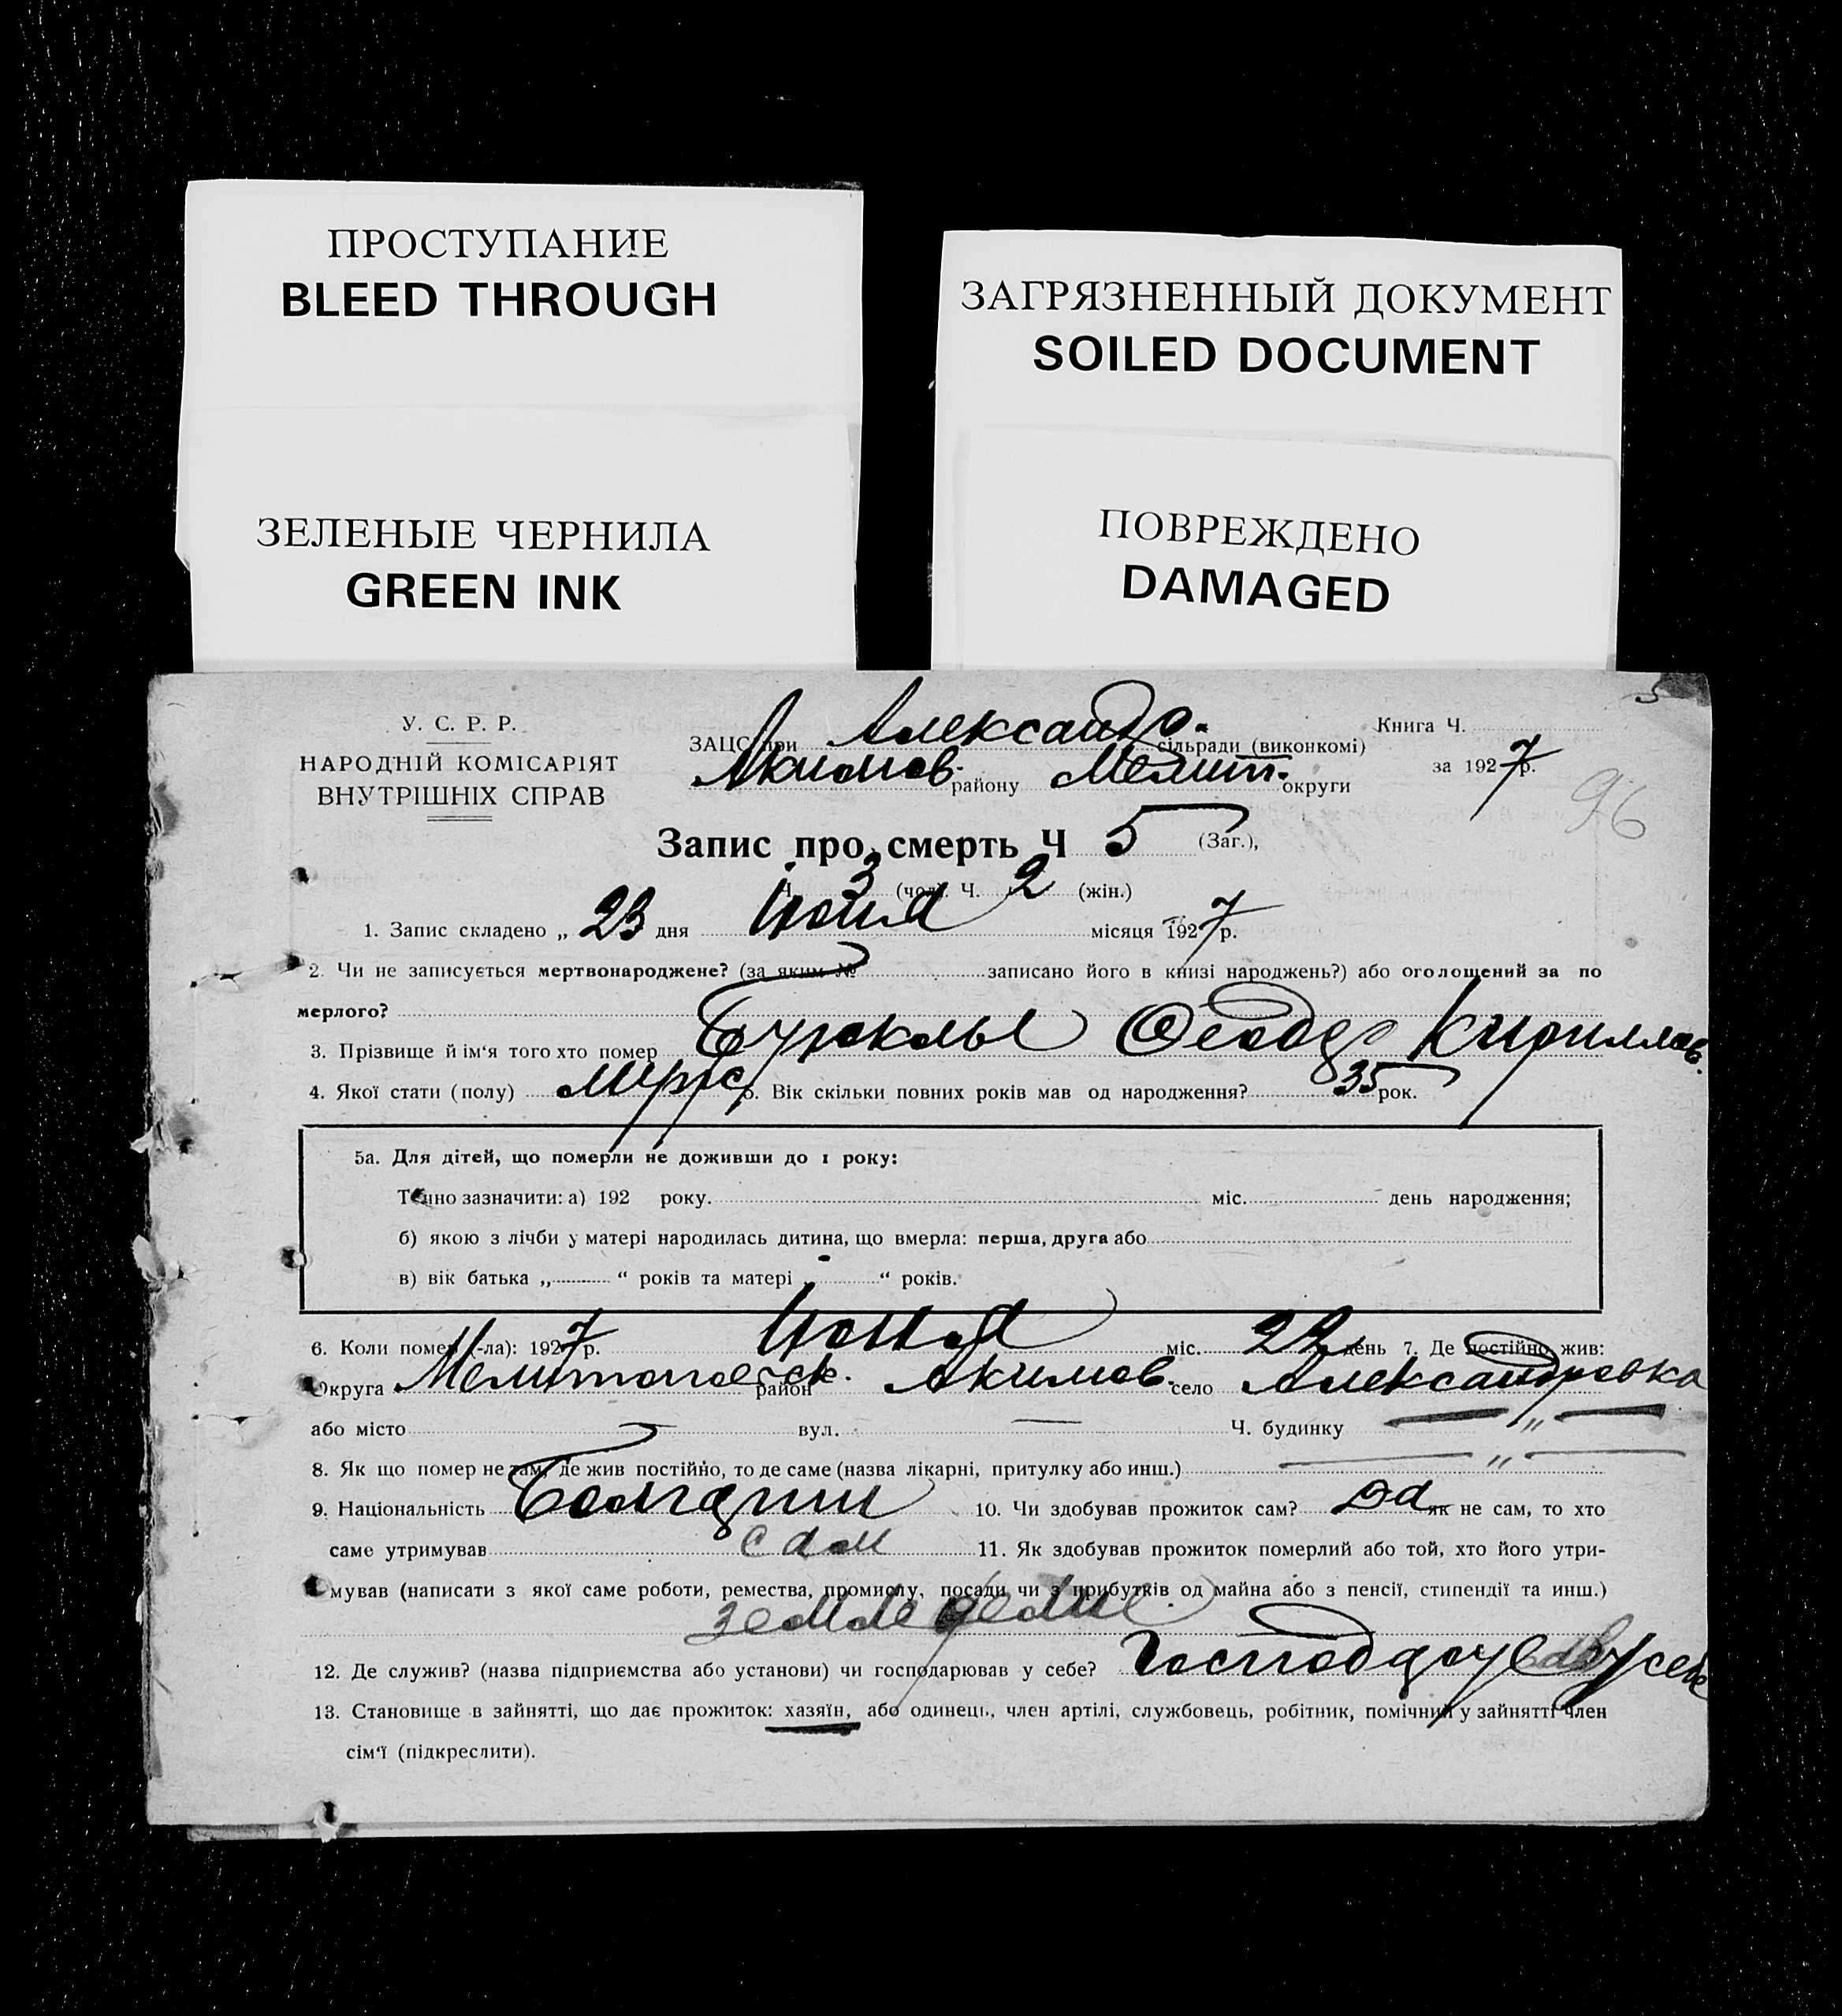 ПРОСТУПАНИЕ
BLEED THROUGH
ЗЕЛЕНЫЕ ЧЕРНИЛА
GREEN INK
ЗАГРЯЗНЕННЫЙ ДОКУМЕНТ
SOILED DOCUMENT
ПОВРЕЖДЕНО
DAMAGED
5
У. С. Р. Р.
НАРОДНІЙ КОМІСАРІЯТ
ВНУТРІШНІХ СПРАВ
ЗАЦС при Александр. сільради (виконкомі)
Акимов. району Мелит. округи
Книга Ч.
за 1927 р.
96
Запис про смерть Ч 5 (Заг.),
Ч. 3 (чол.) Ч. 2 (жін.)
1. Запис складено „ 23 дня місяця 1927 р.
2. Чи не записується мертвонароджене? (за яким № записано його в книзі народжень?) або оголошений за по
мерлого?
3. Прізвище й ім‘я того хто помер Кириллов.
4. Якої стати (полу) 5. Вік скільки повних років мав од народження? 35 рок.
5а. Для дітей, що померли не доживши до 1 року:
Точно зазначити: а) 192 року. міс. день народження;
б) якою з лічби у матері народилась дитина, що вмерла: перша, друга або
в) вік батька „ “ років та матері „ “ років.
6. Коли помер (-ла): 1927 р. міс. 22 день 7. Де постійно жив:
Округа Мелитопольск. район Акимов. село Александровка
або місто — вул. — Ч. будинку — „ —
8. Як що помер не там, де жив постійно, то де саме (назва лікарні, притулку або инш.) — „ —
9. Національність Болгарин 10. Чи здобував прожиток сам? Да як не сам, то хто
саме утримував сам 11. Як здобував прожиток померлий або той, хто його утри-
мував (написати з якої саме роботи, ремества, промислу, посади чи з прибутків од майна або з пенсії, стипендії та инш.)
земледелие
12. Де служив? (назва підприємства або установи) чи господарював у себе? у себе
13. Становище в зайнятті, що дає прожиток: хазяїн, або одинець, член артілі, службовець, робітник, помічний у зайнятті член
сім‘ї (підкреслити).